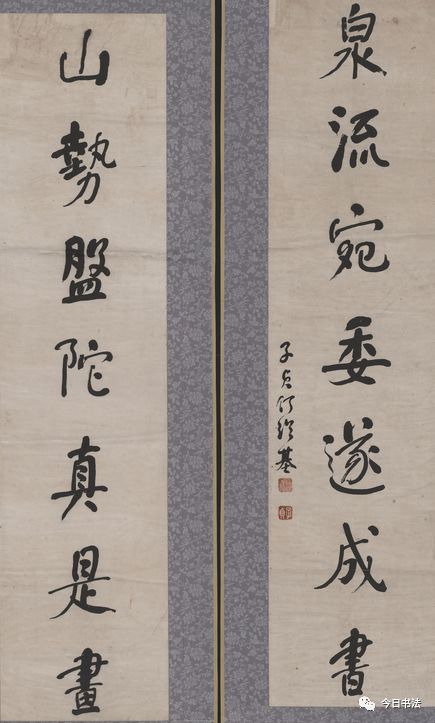 山勢盤陀真是畫
泉流宛委遂成書
子貞何紹基
今日书法